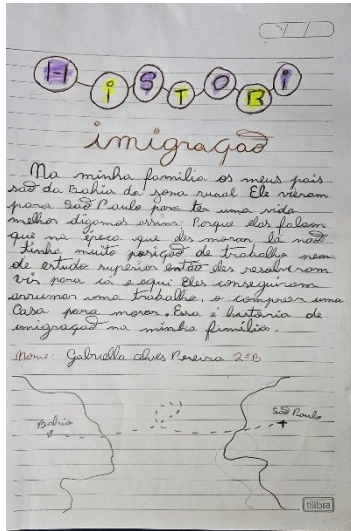 HiSTORi
imigração
Na minha familia os meus pais
são da Bahia da zona rural. Ele vieram
para São Paulo para ter uma vida
melhor digamos assim. Porque eles falam
que na época que eles moram lá não
tinha muito posição de trabalho nem
de estudo superior então eles resolveram
vir para cá e aqui Eles conseguiram
arrumar uma trabalho, e comprar uma
Casa para morar. Essa é história de
imigração na minha família.
Nome: Gabriella Alves Pereira 2ºB
Bahia
São Paulo
tilibra